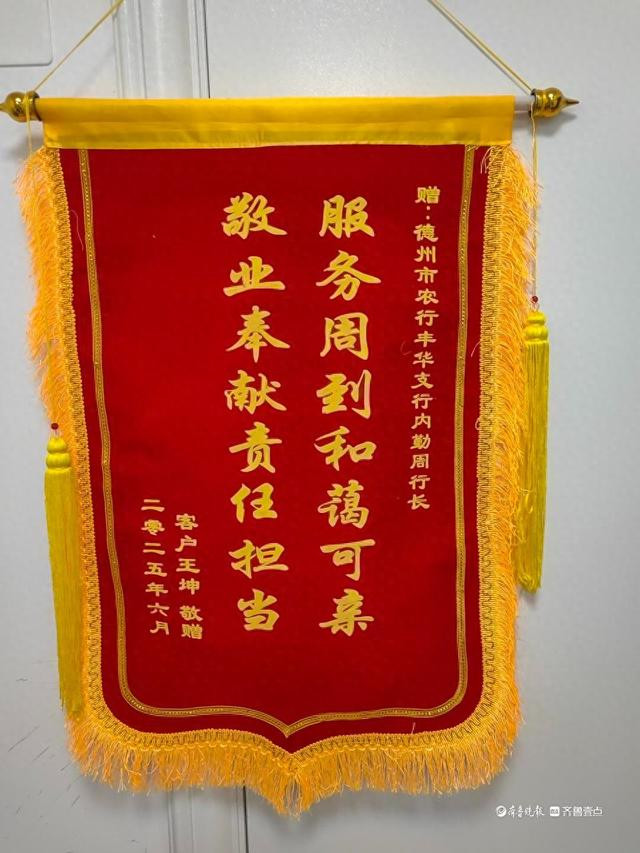 赠：德州市农行丰华支行内勤周行长
服务周到和蔼可亲
敬业奉献责任担当
客户王坤 敬赠
二零二五年六月
齐鲁晚报 齐鲁壹点